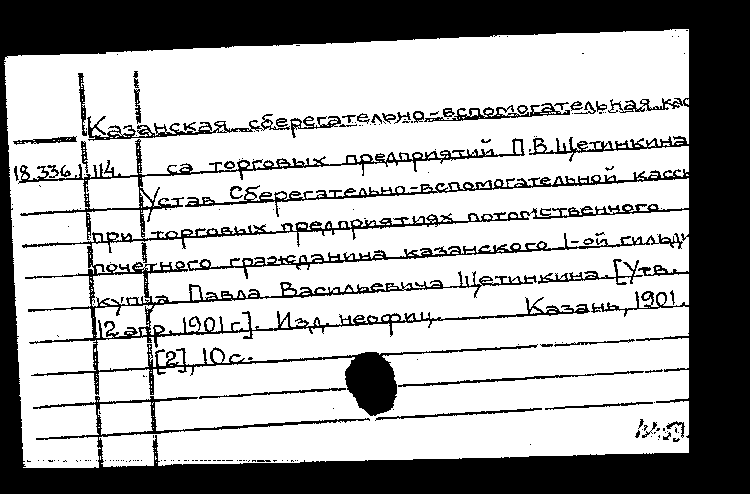 Казанская сберегательно-вспомогательная кас
18.336.1.114. са торговых предприятий П.В.Щетинкина
Устав Сберегательно-вспомогательной кассы
при торговых предприятиях потомственного
почетного гражданина казанского 1-ой гильди
купца Павла Васильевича Щетинкина. [Утв.
12 апр. 1901 г.]. Изд. неофиц. Казань, 1901.
[2], 10 с.